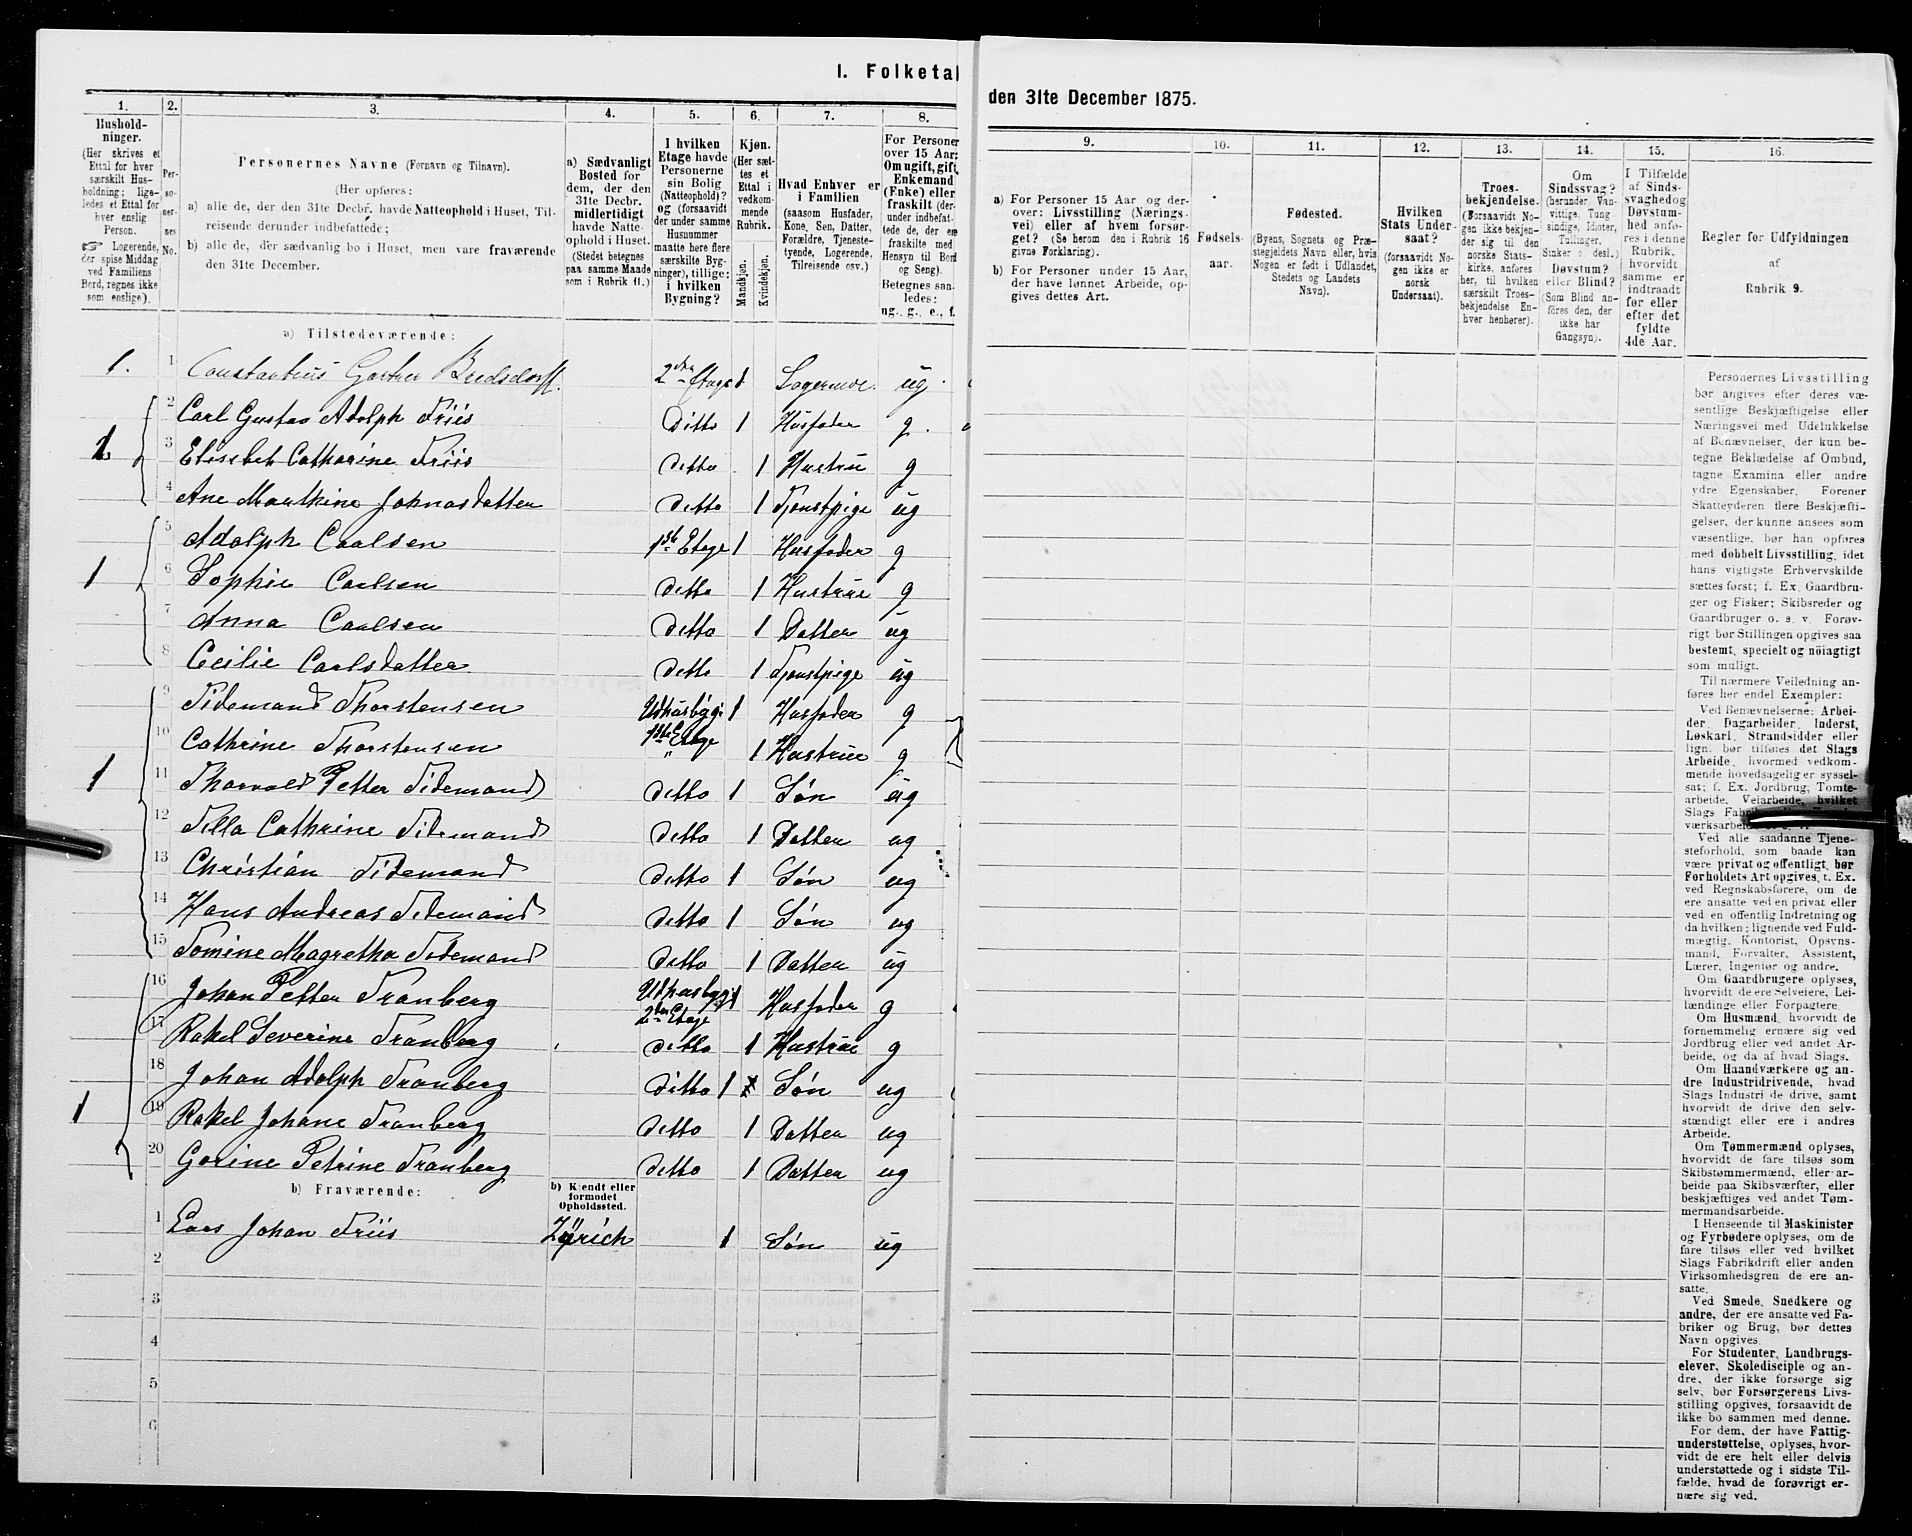 I. Folketal
den 31te December 1875.
1. 2. 3. 4. 5. 6. 7. 8.
Hushold-
ninger.
(Her skrives et
Ettal for hver
særskilt Hus-
holdning; lige-
ledes et Ettal for
hver enslig
Person.
☞ Logerende,
der spise Middag
ved Familiens
Bord, regnes ikke
som enslige).
Per-
so-
ner-
nes
No.
Personernes Navne (Fornavn og Tilnavn).
(Her opføres:
a) alle de, der den 31te Decbr. havde Natteophold i Huset, Til-
reisende derunder indbefattede;
b) alle de, der sædvanlig bo i Huset, men vare fraværende
den 31te December.
a) Sædvanligt
Bosted for
dem, der den
31te Decbr.
midlertidigt
havde Natte-
ophold i Huset.
(Stedet betegnes
paa samme Maade
som i Rubrik 11.)
I hvilken
Etage havde
Personerne
sin Bolig
(Natteophold)?
og (forsaavidt
der under samme
Husnummer
maatte være flere
særskilte Byg-
ninger), tillige:
i hvilken
Bygning?
Kjøn.
(Her sæt-
tes et
Ettal i
vedkom-
mende
Rubrik.
Mandkjøn.
Kvindekjøn.
Hvad Enhver er
i Familien
(saasom Husfader,
Kone, Søn, Datter,
Forældre, Tjeneste-
tyende, Logerende,
Tilreisende osv.)
For Personer
over 15 Aar:
Om ugift, gift,
Enkemand
(Enke) eller
fraskilt (der-
under indbefat-
tede, der ere
fraskilte med
Hensyn til Bord
og Seng).
Betegnes saa-
ledes:
ug., g., e., f.
a) Tilstedeværende:
1. 1 Constantius Gartner Bredsdorff. 2den Etage 1 Logerende. ug.
2 Carl Gustav Adolph Friis Ditto 1 Husfader g.
1 3 Elisebet Catharine Friis ditto 1 Hustru g
4 Ane Maatkine Johnasdatter ditto 1 Tjenstpige ug
5 Adolph Caalsen 1ste Etage 1 Husfader g
1 6 Sophie Caalsen ditto 1 Hustrue g
7 Anna Caalsen ditto 1 Datter ug
8 Cecilie Carlsdatter ditto 1 Tjenstpige ug
9 Tidemand Thorstensen Udhusbygn 1 Husfader g
1ste Etage
10 Cathrine Thorstensen " 1 Hustrue g
1 11 Thorvald Petter Tidemand ditto 1 Søn ug
12 Tilla Cathrine Tidemand ditto 1 Datter ug
13 Christian Tidemand ditto 1 Søn ug
14 Hans Andreas Tidemand ditto 1 Søn ug
15 Tomine Magretha Tidemand ditto 1 Datter ug
16 Johan Petter Tranberg Udhusbygn 1 Husfader g
2den Etage
17 Rakel Severine Tranberg ditto 1 Hustrue g
18 Johan Adolph Tranberg ditto 1 Søn ug
1 19 Rakel Johane Tranberg ditto 1 Datter ug
20 Gorine Petrine Tranberg ditto 1 Datter ug
b) Fraværende:
b) Kjendt eller
formodet
Opholdssted.
1 Lars Johan Friis Zürich 1 Søn ug
2
3
4
5
6
9. 10. 11. 12. 13. 14. 15. 16.
a) For Personer 15 Aar og der-
over: Livsstilling (Nærings-
vei) eller af hvem forsør-
get? (Se herom den i Rubrik 16
givne Forklaring).
b) For Personer under 15 Aar,
der have lønnet Arbeide, op-
gives dettes Art.
Fødsels-
aar.
Fødested.
(Byens, Sognets og Præ-
stegjeldets Navn eller, hvis
Nogen er født i Udlandet,
Stedets og Landets
Navn).
Hvilken
Stats Under-
saat?
(forsaavidt No-
gen ikke er
norsk
Undersaat).
Troes-
bekjendelse.
(Forsaavidt No-
gen ikke bekjen-
der sig til den
norske Stats-
kirke, anføres
her, til hvilken
særskilt Troes-
bekjendelse En-
hver henhører).
Om
Sindssvag?
(herunder Van-
vittige, Tung-
sindige, Idioter,
Tullinger,
Sinker o. desl.)
Døvstum?
eller Blind?
(Som Blind an-
føres den, der
ikke har
Gangsyn).
I Tilfælde
af Sinds-
svaghed og
Døvstum-
hed anfø-
res i denne
Rubrik,
hvorvidt
samme er
indtraadt
før eller
efter det
fyldte
4de Aar.
Regler for Udfyldningen
af
Rubrik 9.
Personernes Livsstilling
bør angives efter deres væ-
sentlige Beskjæftigelse eller
Næringsvei med Udelukkelse
af Benævnelser, der kun be-
tegne Beklædelse af Ombud,
tagne Examina eller andre
ydre Egenskaber. Forener
Skatteyderen flere Beskjæfti-
gelser, der kunne ansees som
væsentlige, bør han opføres
med dobbelt Livsstilling, idet
hans vigtigste Erhvervskilde
sættes først; f. Ex. Gaardbru-
ger og Fisker; Skibsreder og
Gaardbruger o. s. v. Forøv-
rigt bør Stillingen opgives saa
bestemt, specielt og nøiagtigt
som muligt.
Til nærmere Veiledning an-
føres her endel Exempler:
Ved Benævnelserne: Arbei-
der, Dagarbeider, Inderst,
Løskarl, Strandsidder eller
lign. bør tilføres det Slags
Arbeide, hvormed vedkom-
mende hovedsagelig er syssel-
sat; f. Ex. Jordbrug, Tomte-
arbeide, Veiarbeide, hvilket
Slags
værksarbeide
Ved alle saadanne Tjene-
steforhold, som baade kan
være privat og offentligt, bør
Forholdets Art opgives, f. Ex.
ved Regnskabsførere, om de
ere ansatte ved en privat eller
ved en offentlig Indretning og
da hvilken; lignende ved Fuld-
mægtig, Kontorist, Opsyns-
mand, Forvalter, Assistent,
Lærer, Ingeniør og andre.
Om Gaardbrugere oplyses,
hvorvidt de ere Selveiere, Lei-
lændinge eller Forpagtere
Om Husmænd, hvorvidt de
fornemmelig ernære sig ved
Jordbrug eller ved andet Ar-
beide, og da af hvad Slags.
Om Haandværkere og an-
dre Industridrivende, hvad
Slags Industri de drive, samt
hvorvidt de drive den selv-
stændigt eller ere i andres
Arbeide.
Om Tømmermænd oplyses,
hvorvidt de fare tilsøs som
Skibstømmermænd, eller ar-
beide paa Skibsværfter, eller
beskjæftiges ved andet Tøm-
mermandsarbeide.
I Henseende til Maskinister
og Fyrbødere oplyses, om de
fare tilsøs eller ved hvilket
Slags Fabrikdrift eller anden
Virksomhedsgren de ere an-
satte.
Ved Smede, Snedkere og
andre, der ere ansatte ved Fa-
briker og Brug, bør dettes
Navn opgives.
For Studenter, Landbrugs-
elever, Skoledisciple og an-
dre, der ikke forsørge sig
selv, bør Forsørgerens Livs-
stilling opgives, forsaavidt de
ikke bo sammen med denne.
For dem, der have Fattig-
understøttelse, oplyses, hvor-
vidt de ere helt eller delvis
understøttede og i sidste Til-
fælde, hvad de forøvrigt er-
nære sig ved.